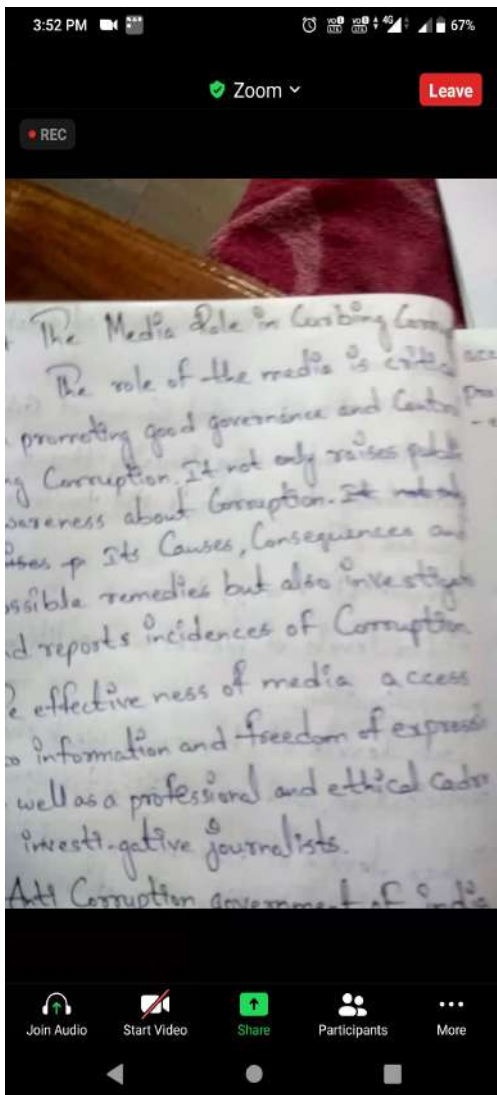 3:52 PM
VoD LTE VoD LTE 4G 67%
Zoom
Leave
REC
The Media Role in Curbing Corru
The role of the media is critic
acc
promoting good governance and Contro
pro
ng Corruption. It not only raises publi
wareness about Corruption. It not only
ises p Its Causes, Consequences and
ossible remedies but also investigat
nd reports incidences of Corruption
e effective ness of media access
to information and freedom of express
well as a professional and ethical Cadre
investi-gative journalists.
Anti Corruption government of india
Join Audio Start Video Share Participants More